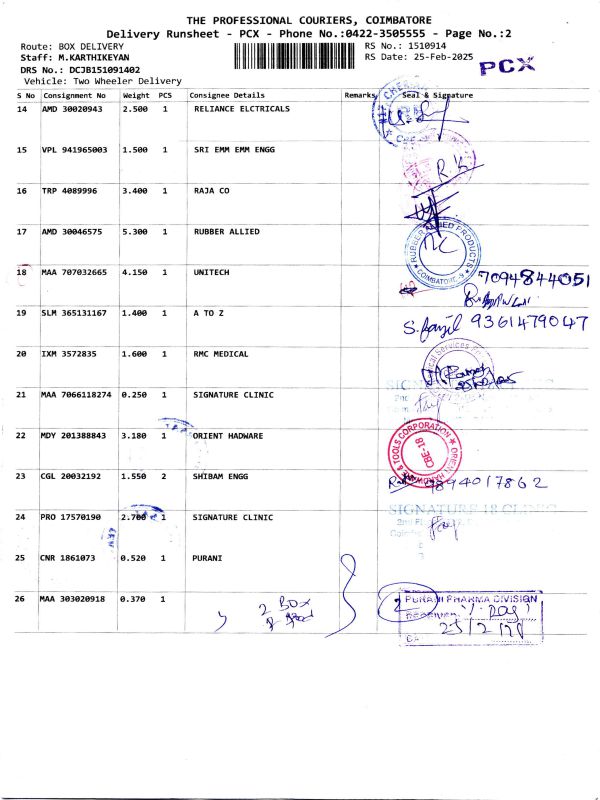 THE PROFESSIONAL COURIERS, COIMBATORE
Delivery Runsheet - PCX - Phone No.:0422-3505555 - Page No.:2
Route: BOX DELIVERY RS No.: 1510914
Staff: M.KARTHIKEYAN RS Date: 25-Feb-2025
PCX
DRS No.: DCJB151091402
Vehicle: Two Wheeler Delivery
S No Consignment No Weight PCS Consignee Details Remarks Seal & Signature
14 AMD 30020943 2.500 1 RELIANCE ELCTRICALS
15 VPL 941965003 1.500 1 SRI EMM EMM ENGG
16 TRP 4089996 3.400 1 RAJA CO
17 AMD 30046575 5.300 1 RUBBER ALLIED
RUBBER ALLIED PRODUCTS
COIMBATORE-9
18 MAA 707032665 4.150 1 UNITECH
7094844051
19 SLM 365131167 1.400 1 A TO Z
9361479047
20 IXM 3572835 1.600 1 RMC MEDICAL
21 MAA 7066118274 0.250 1 SIGNATURE CLINIC
22 MDY 201388843 3.180 1 ORIENT HADWARE
ORIENT HARDWARE & TOOLS CORPORATION
CBE-18
23 CGL 20032192 1.550 2 SHIBAM ENGG
9894017862
24 PRO 17570190 2.700 1 SIGNATURE CLINIC
SIGNATURE 18 CLINIC
25 CNR 1861073 0.520 1 PURANI
26 MAA 303020918 0.370 1
2 BOX
PURANI PHARMA DIVISION